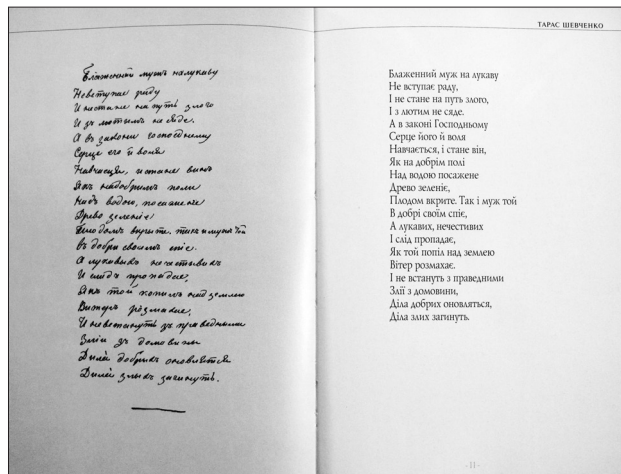 Блаженный мужъ на лукаву
Невступає раду
И нестане на путь злого
И зъ лютымъ не сяде.
А въ законі господнему
Серце его й воля
Навчаєця, и стане винъ
Якъ надобримъ поли
Надъ водою, посажене
Древо зелениє
Плодомъ вкрите. такъ и мужъ той
Въ добри своимъ спіє.
А лукавыхъ нечестивыхъ
И слидъ пропадає,
Якъ той попилъ над землею
Витеръ розмахає,
И невстануть зъ праведными
Злии зъ домовины
Дила добрыхъ оновлятся
Дила злыхъ загинуть.
ТАРАС ШЕВЧЕНКО
Блаженний муж на лукаву
Не вступає раду,
І не стане на путь злого,
І з лютим не сяде.
А в законі Господньому
Серце його й воля
Навчається, і стане він,
Як на добрім полі
Над водою посажене
Древо зеленіє,
Плодом вкрите. Так і муж той
В добрі своїм спіє,
А лукавих, нечестивих
І слід пропадає,
Як той попіл над землею
Вітер розмахає.
І не встануть з праведними
Злії з домовини,
Діла добрих оновляться,
Діла злих загинуть.
-11-